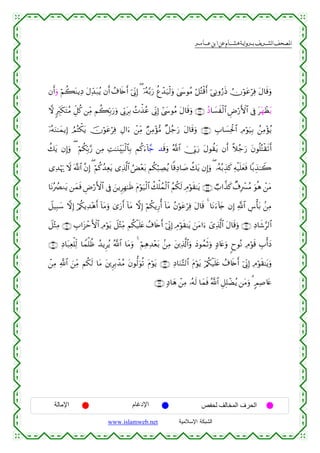 المصحف الشريف برواية هشام عن ابن عامر
وَقَالَ فِرْعَوْنُ ذَرُونِي أَقْتُلْ مُوسَىٰ وَلْيَدْعُ رَبَّهُۥ إِنِّي أَخَافُ أَن يُبَدِّلَ دِينَكُمْ وَأَن
يَظْهَرَ فِي الْأَرْضِ الْفَسَادُ وَقَالَ مُوسَىٰ إِنِّي عُذْتُ بِرَبِّي وَرَبِّكُم مِّن كُلِّ مُتَكَبِّرٍ لَّا
يُؤْمِنُ بِيَوْمِ الْحِسَابِ وَقَالَ رَجُلٌ مُّؤْمِنٌ مِّنْ آلِ فِرْعَوْنَ يَكْتُمُ إِيمَانَهُۥ
أَتَقْتُلُونَ رَجُلًا أَن يَقُولَ رَبِّيَ اللَّهُ وَقَدْ جَاءَكُم بِالْبَيِّنَاتِ مِن رَّبِّكُمْ وَإِن يَكُ
كَاذِبًا فَعَلَيْهِ كَذِبُهُۥ وَإِن يَكُ صَادِقًا يُصِبْكُم بَعْضُ الَّذِي يَعِدُكُمْ إِنَّ اللَّهَ لَا يَهْدِي
مَنْ هُوَ مُسْرِفٌ كَذَّابٌ يَٰقَوْمِ لَكُمُ الْمُلْكُ الْيَوْمَ ظَاهِرِينَ فِي الْأَرْضِ فَمَن يَنصُرُنَا
مِن بَأْسِ اللَّهِ إِن جَاءَنَا قَالَ فِرْعَوْنُ مَا أُرِيكُمْ إِلَّا مَا أَرَىٰ وَمَا أَهْدِيكُمْ إِلَّا سَبِيلَ
الرَّشَادِ وَقَالَ الَّذِي آمَنَ يَٰقَوْمِ إِنِّي أَخَافُ عَلَيْكُم مِّثْلَ يَوْمِ الْأَحْزَابِ مِثْلَ
دَأْبِ قَوْمِ نُوحٍ وَعَادٍ وَثَمُودَ وَالَّذِينَ مِن بَعْدِهِمْ وَمَا اللَّهُ يُرِيدُ ظُلْمًا لِّلْعِبَادِ
وَيَٰقَوْمِ إِنِّي أَخَافُ عَلَيْكُمْ يَوْمَ التَّنَادِ يَوْمَ تُوَلُّونَ مُدْبِرِينَ مَا لَكُم مِّنَ اللَّهِ مِنْ
عَاصِمٍ وَمَن يُضْلِلِ اللَّهُ فَمَا لَهُۥ مِنْ هَادٍ
الحرف المخالف لحفص الإدغام الإمالة
الشبكة الإسلامية www.islamweb.net